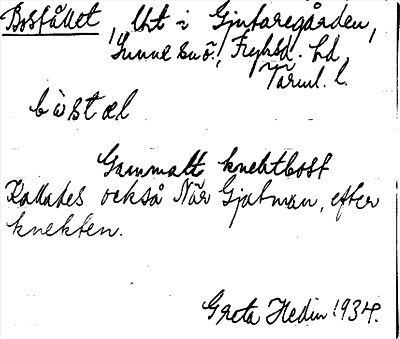 Bosfållet, lht i Gjutaregården,
Sunne sn ö., Fryksd. hd,
Värml. l.
bòstæl
Gammalt knektbost
Kallades också När Gjatman, efter
knekten.
Greta Hedin 1934.